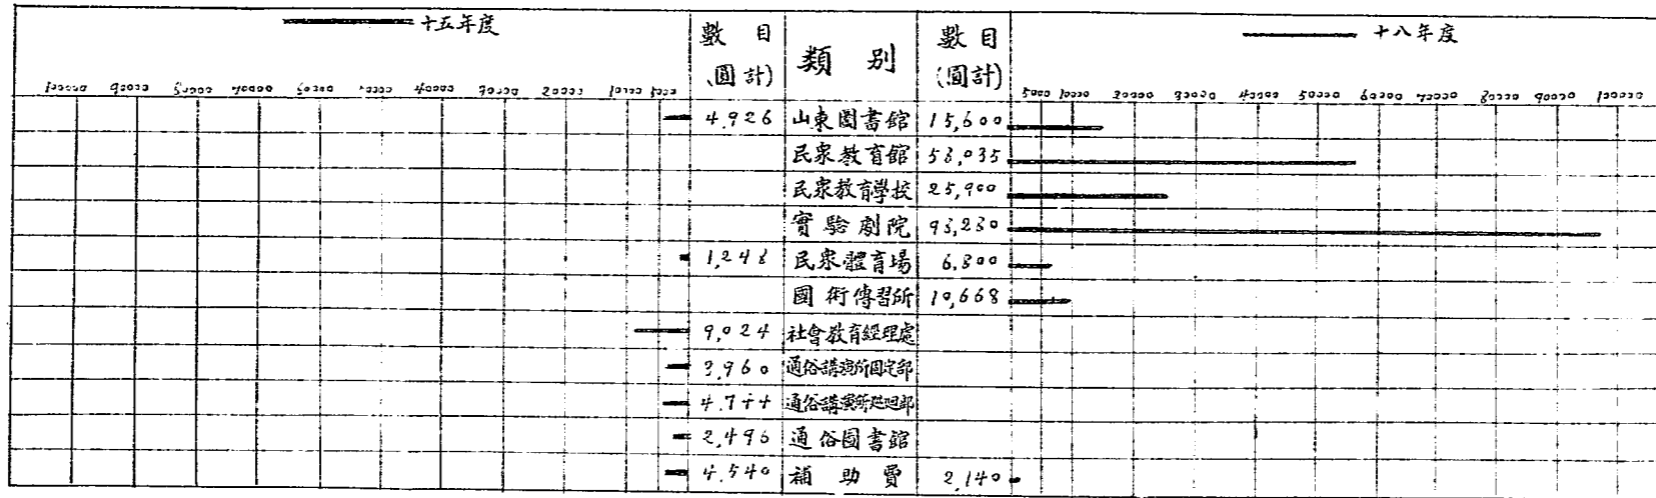 十五年度
數目 (圓計)
類別
數目 (圓計)
十八年度
100000 90000 80000 70000 60000 50000 40000 30000 20000 10000 5000
5000 10000 20000 30000 40000 50000 60000 70000 80000 90000 100000
4,926 山東圖書館 15,600
民衆教育館
民衆教育學校 25,900
實驗劇院
1,248 民衆體育場 6,800
國術傳習所 10,668
9,024 社會教育經理處
3,960 通俗講演所固定部
通俗講演所巡迴部
2,496 通俗圖書館
4,540 補助費 2,140